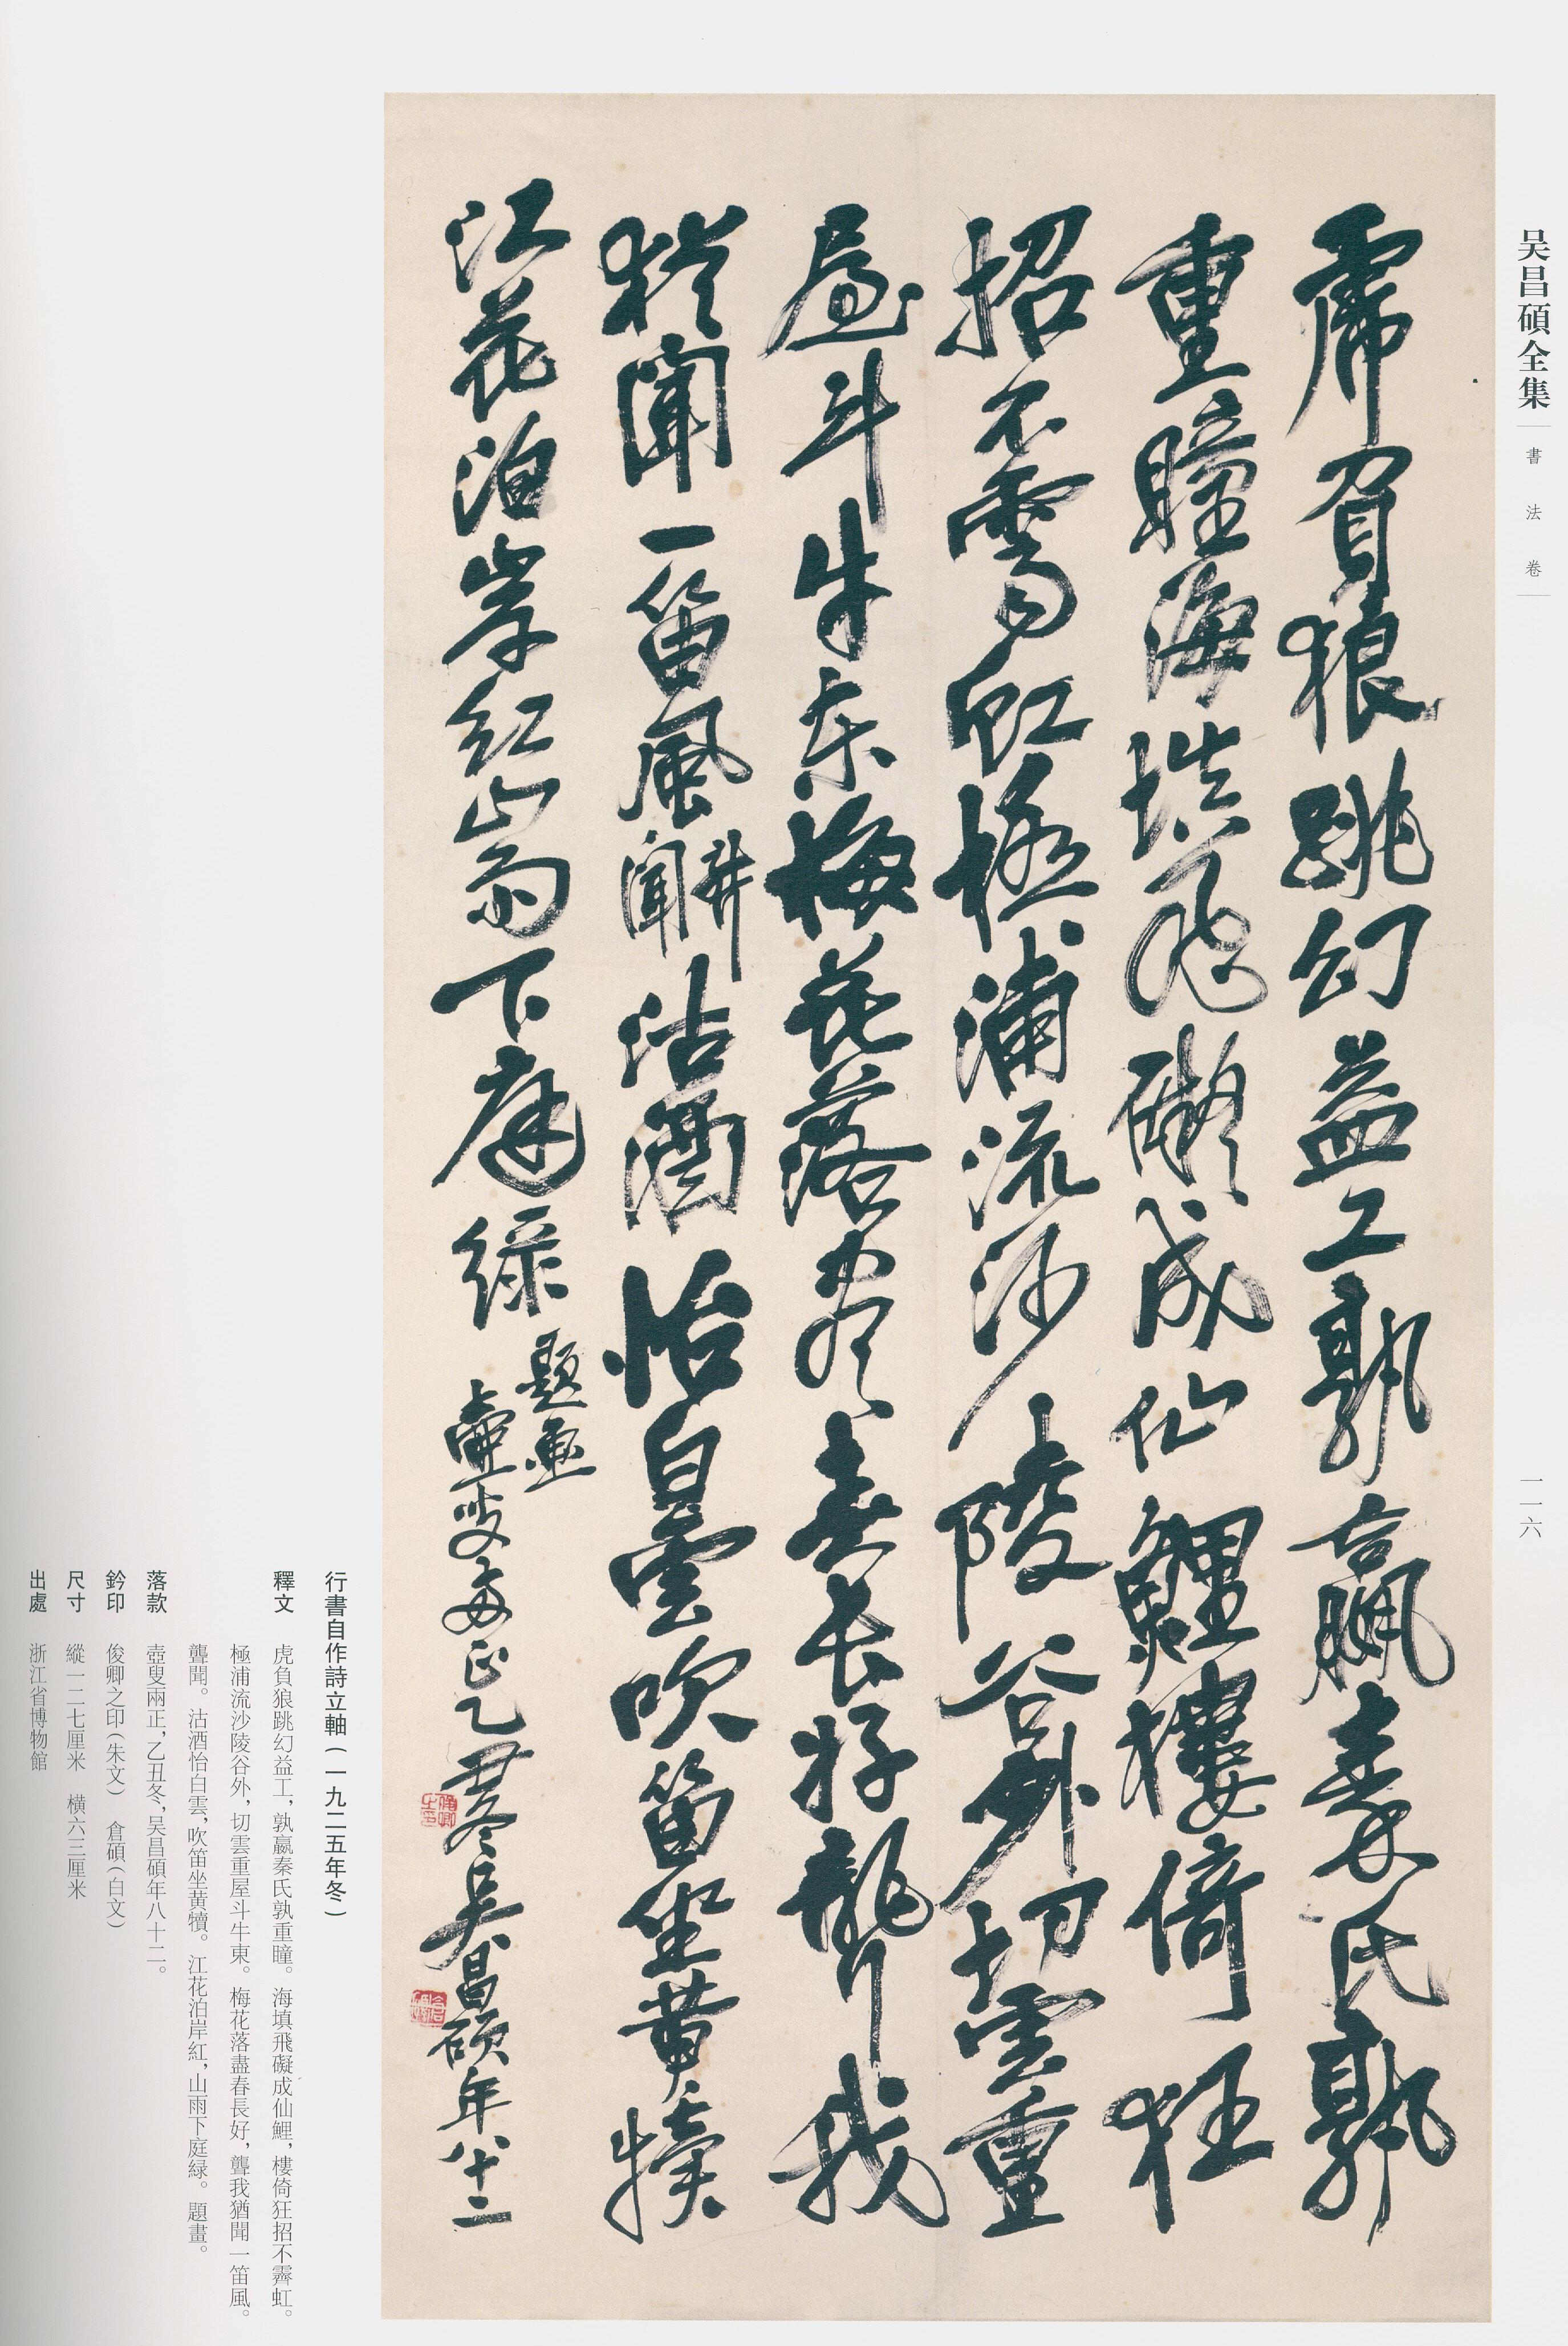 吴昌碩全集
書法卷
一一六
虎負狼跳幻益工孰嬴秦氏孰
重瞳海填飛礙成仙鯉樓倚狂
招不霽虹極浦流沙陵谷外切雲重
屋斗牛東梅花落盡春長好聾我
猶聞一笛風聾聞沽酒怡白雲吹笛坐黄犢
江花泊岸紅山雨下庭緑題畫
壺叟兩正乙丑冬吴昌碩年八十二
行書自作詩立軸（一九二五年冬）
釋文 虎負狼跳幻益工，孰嬴秦氏孰重瞳。海填飛礙成仙鯉，樓倚狂招不霽虹。
極浦流沙陵谷外，切雲重屋斗牛東。梅花落盡春長好，聾我猶聞一笛風。
聾聞。沽酒怡白雲，吹笛坐黄犢。江花泊岸紅，山雨下庭緑。題畫。
落款 壺叟兩正，乙丑冬，吴昌碩年八十二。
鈐印 俊卿之印（朱文） 倉碩（白文）
尺寸 縱一二七厘米 横六三厘米
出處 浙江省博物館